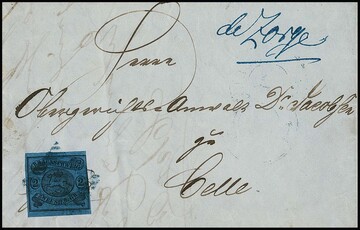 de Zorge
Herrn
Obergerichts-Anwalt Dr. Jacobsen
zu
Celle.